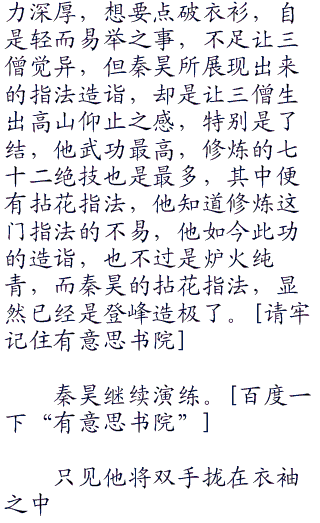 力深厚，想要点破衣衫，自
是轻而易举之事，不足让三
僧觉异，但秦昊所展现出来
的指法造诣，却是让三僧生
出高山仰止之感，特别是了
结，他武功最高，修炼的七
十二绝技也是最多，其中便
有拈花指法，他知道修炼这
门指法的不易，他如今此功
的造诣，也不过是炉火纯
青，而秦昊的拈花指法，显
然已经是登峰造极了。[请牢
记住有意思书院]
秦昊继续演练。[百度一
下“有意思书院”]
只见他将双手拢在衣袖
之中